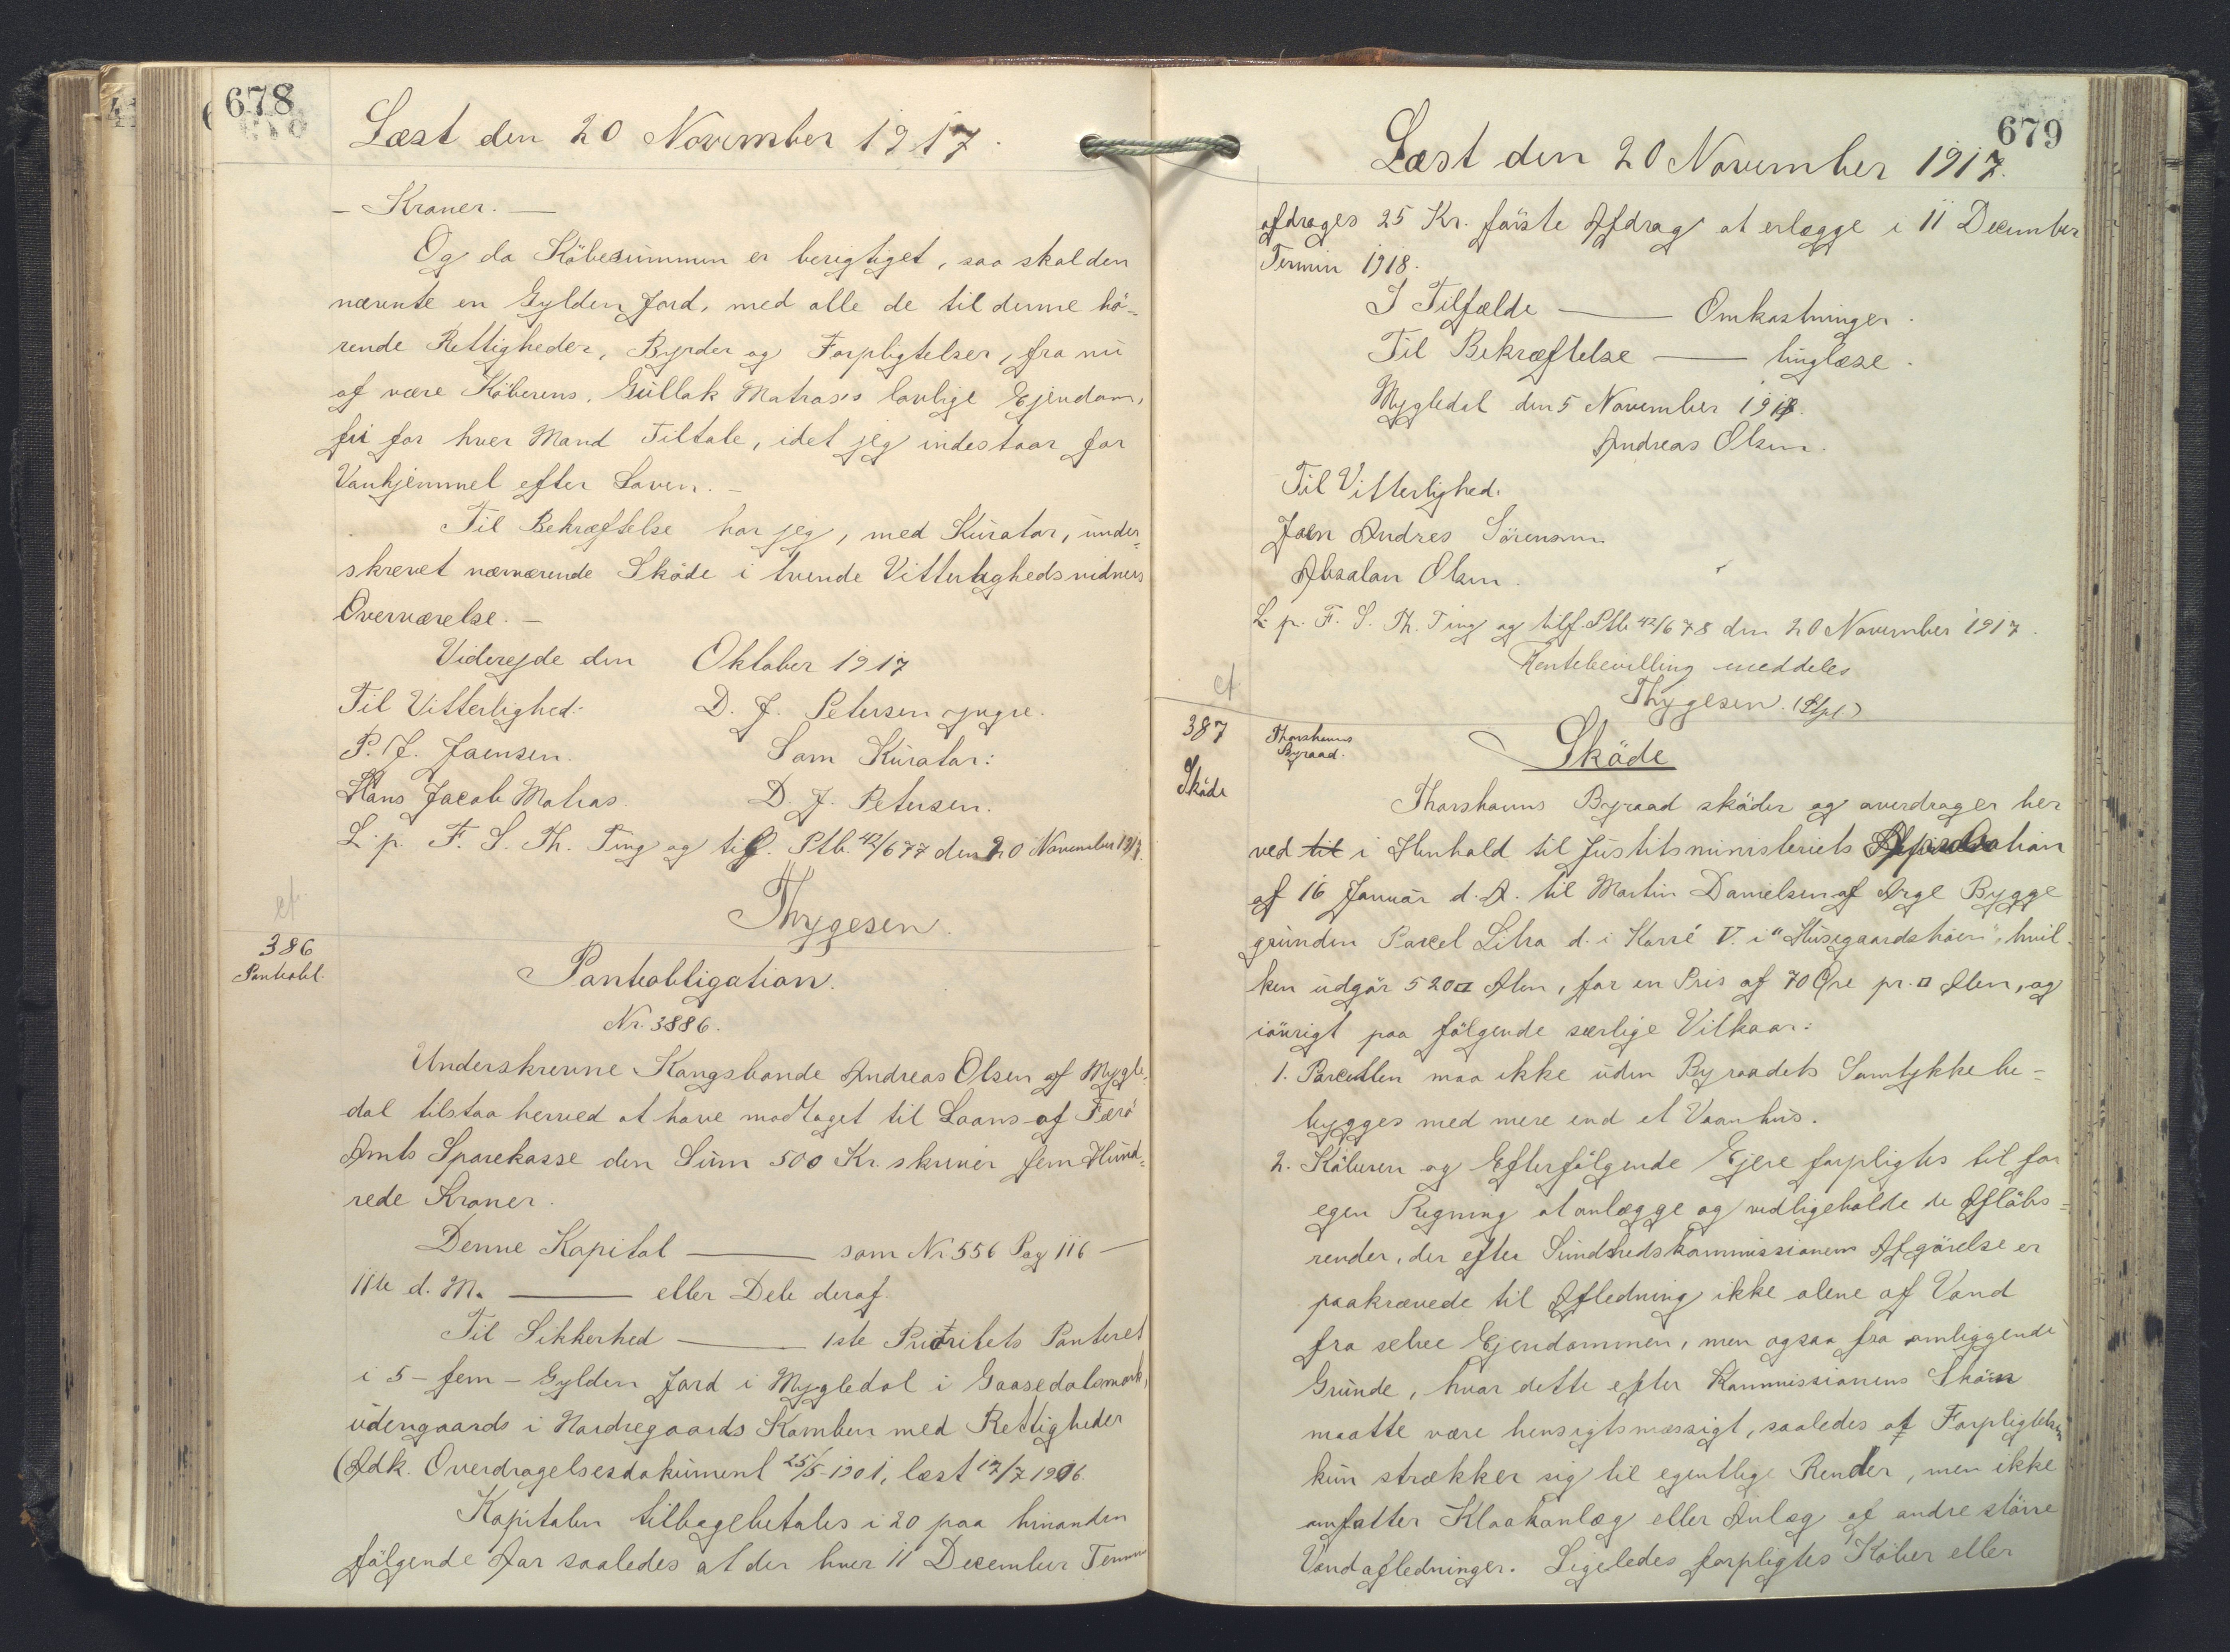 678
Læst den 20 November 1917.
- Kroner. -
Og da Köbesummen er berigtiget, saa skal den
nævnte en Gylden Jord, med alle de til denne hö-
rende Rettigheder, Byrder og Forpligtelser, fra nu
af være Köberens, Gullak Matras's lovlige Ejendom,
fri for hver Mand Tiltale, idet jeg indestaar for
Vanhjemmel efter Loven. -
Til Bekræftelse har jeg, med Kurator, under-
skrevet nærværende Sköde i tvende Vitterlighedsvidners
Overværelse. -
Viderejde den Oktober 1917
Til Vitterlighed: D. J. Petersen yngre.
P. J. Joensen. Som Kurator:
Hans Jacob Matras. D. J. Petersen.
L. p. F. S. Th. Ting og tilf. Ptb. 42/677 den 20 November 1917.
Thygesen.
cf.
386
Panteobl.
Panteobligation.
Nr. 3886.
Underskrevne Kongsbonde Andreas Olsen af Mygle-
dal tilstaa herved at have modtaget til Laans af Færö
Amts Sparekasse den Sum 500 Kr. skriver fem Hund-
rede Kroner.
Denne Kapital ——— som Nr 556 Pag 116 —
11te d. M. ——— eller Dele deraf.
Til Sikkerhed ——— 1ste Prioritets Panteret
i 5 - fem - Gylden Jord i Mygledal i Gaasedalsmark,
udengaards i Nordregaards Kamben med Rettigheder
(Adk. Overdragelsesdokument 25/5-1901, læst 17/7 1906.
Kapitalen tilbagebetales i 20 paa hinanden
følgende Aar saaledes at der hver 11 December Termin
679
Læst den 20 November 1917.
afdrages 25 Kr. förste Afdrag at erlægge i 11 December
Termin 1918.
I Tilfælde ——— Omkostninger.
Til Bekræftelse ——— tinglæse.
Mygledal den 5 November 1917.
Andreas Olsen.
Til Vitterlighed.
Joen Andres Sörensen
Absalon Olsen.
L. p. F. S. Th. Ting og tilf. Ptb. 42/678 den 20 November 1917.
Rentebevilling meddeles
Thygesen. (Stpl.)
cf
387
Sköde
Thorshavns
Byraad.
Sköde
Thorshavns Byraad sköder og overdrager her
ved til i Henhold til Justitsministeriets Approbation
af 16 Januar d. A. til Martin Danielsen af Arge Bygge
grunden Parcel Litra d. i Karré V. i "Husegaardshöen", hvil-
ken udgör 520 □ Alen, for en Pris af 70 Øre pr. □ Alen, og
iövrigt paa fölgende særlige Vilkaar:
1. Parcellen maa ikke uden Byraadets Samtykke be-
bygges med mere end et Vaanhus.
2. Köberen og Efterfölgende Ejere forpligtes til for
egen Regning at anlægge og vedligeholde de Aflöbs-
render, der efter Sundhedskommissionens Afgörelse er
paakrævede til Afledning ikke alene af Vand
fra selve Ejendommen, men ogsaa fra omliggende
Grunde, hvor dette efter Kommissionens Skön
maatte være hensigtsmæssigt, saaledes at Forpligtelsen
kun strækker sig til egentlige Render, men ikke
omfatter Kloakanlæg eller Anlæg af andre större
Vandafledninger. Ligeledes forpligtes Köber eller